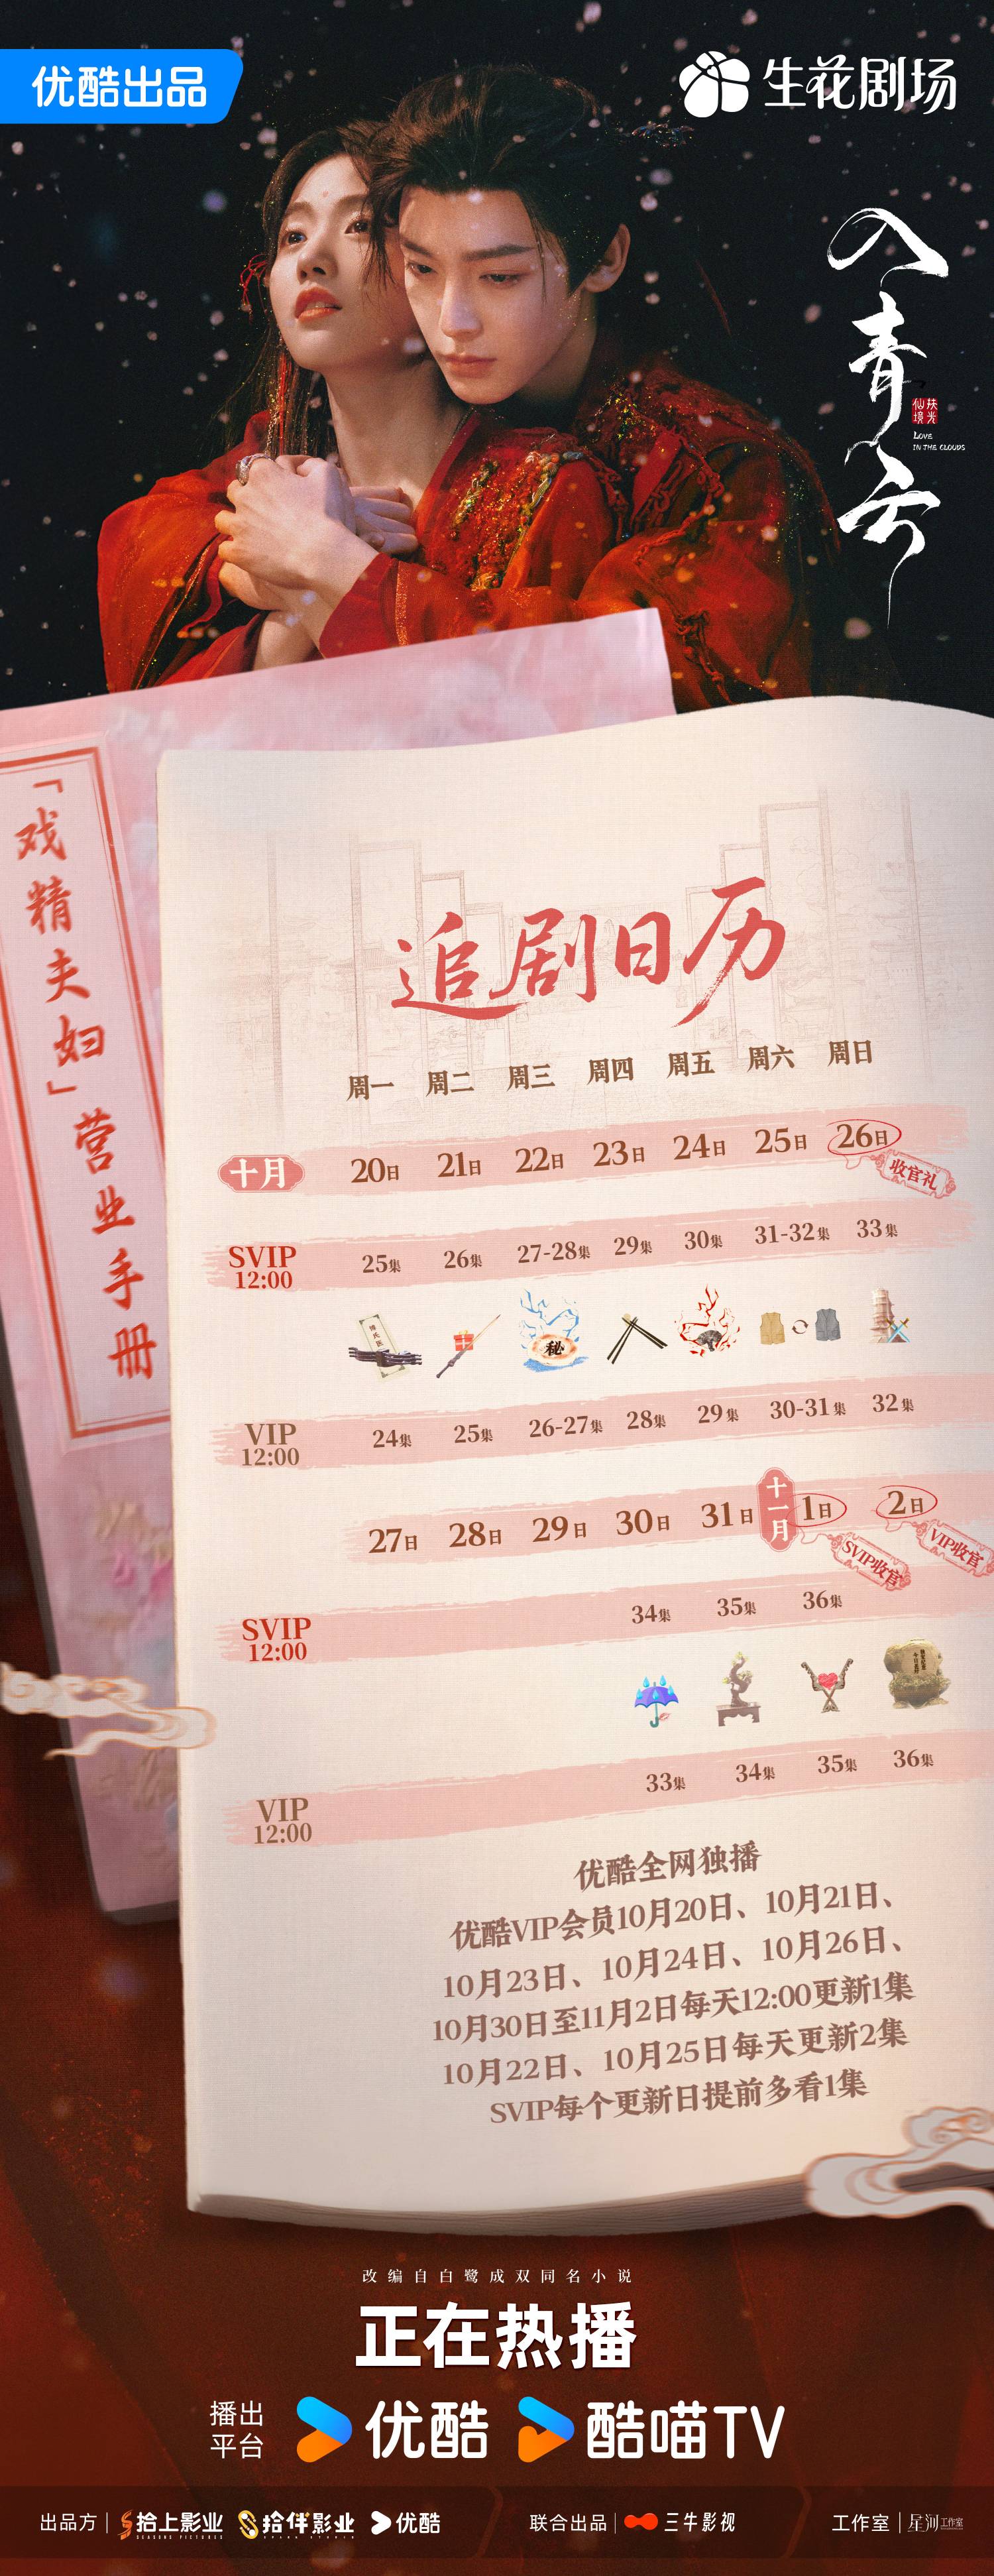 优酷出品
生花剧场
入青云
扶光
仙境
LOVE
IN THE CLOUDS
「戏精夫妇」营业手册
追剧日历
周一 周二 周三 周四 周五 周六 周日
十月 20日 21日 22日 23日 24日 25日 26日
收官礼
SVIP 12:00 25集 26集 27-28集 29集 30集 31-32集 33集
秘
VIP 12:00 24集 25集 26-27集 28集 29集 30-31集 32集
27日 28日 29日 30日 31日 十一月 1日 2日
SVIP收官 VIP收官
SVIP 12:00 34集 35集 36集
VIP 12:00 33集 34集 35集 36集
优酷全网独播
优酷VIP会员10月20日、10月21日、
10月23日、10月24日、10月26日、
10月30日至11月2日每天12:00更新1集
10月22日、10月25日每天更新2集
SVIP每个更新日提前多看1集
改编自白鹭成双同名小说
正在热播
播出平台 优酷 酷喵TV
出品方 拾上影业 SEASONS PICTURES 拾伴影业 优酷 联合出品 三牛影视 工作室 星河工作室